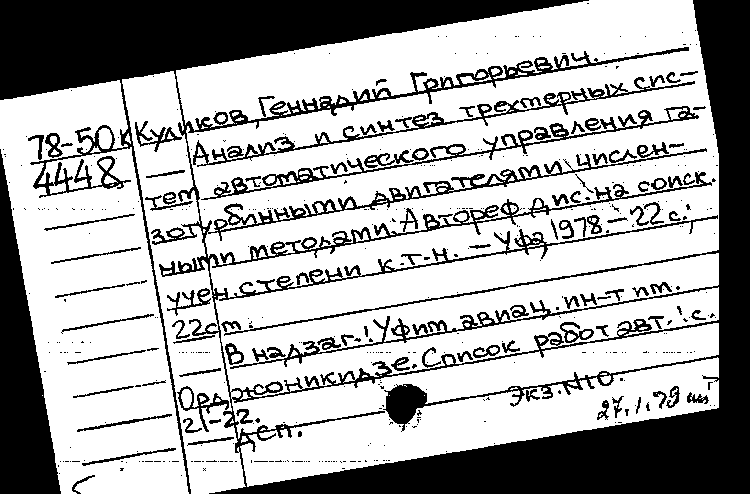 78-50к Куликов, Геннадий Григорьевич.
4448 Анализ и синтез трехмерных сис-
тем автоматического управления га-
зотурбинными двигателями числен-
ными методами: Автореф. дис. на соиск.
учен. степени к.т.н. - Уфа, 1978. - 22 с.;
22 см.
В надзаг.: Уфим. авиац. ин-т им.
Орджоникидзе. Список работ авт.: с.
21-22.
Деп. Экз. № 0.
27.1.79